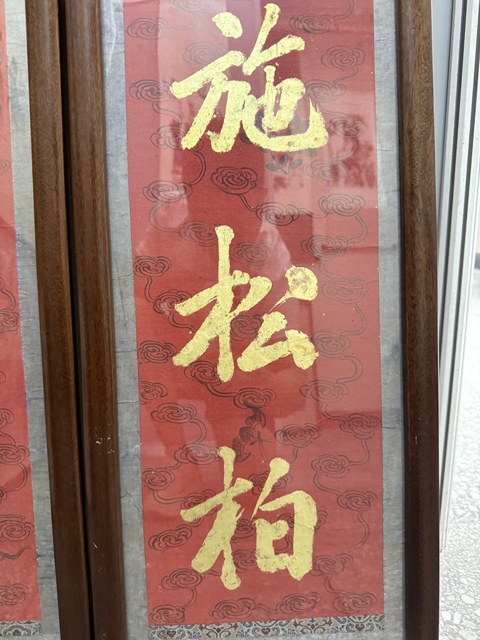 施松柏